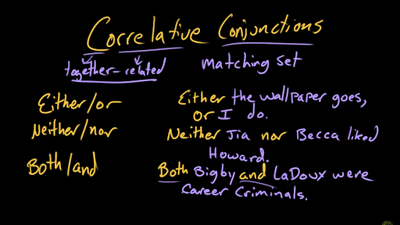 Correlative Conjunctions
together-related matching set
Either/or Either the wallpaper goes,
or I do.
Neither/nor Neither Jia nor Becca liked
Howard.
Both/and Both Bigby and LaDoux were
career criminals.